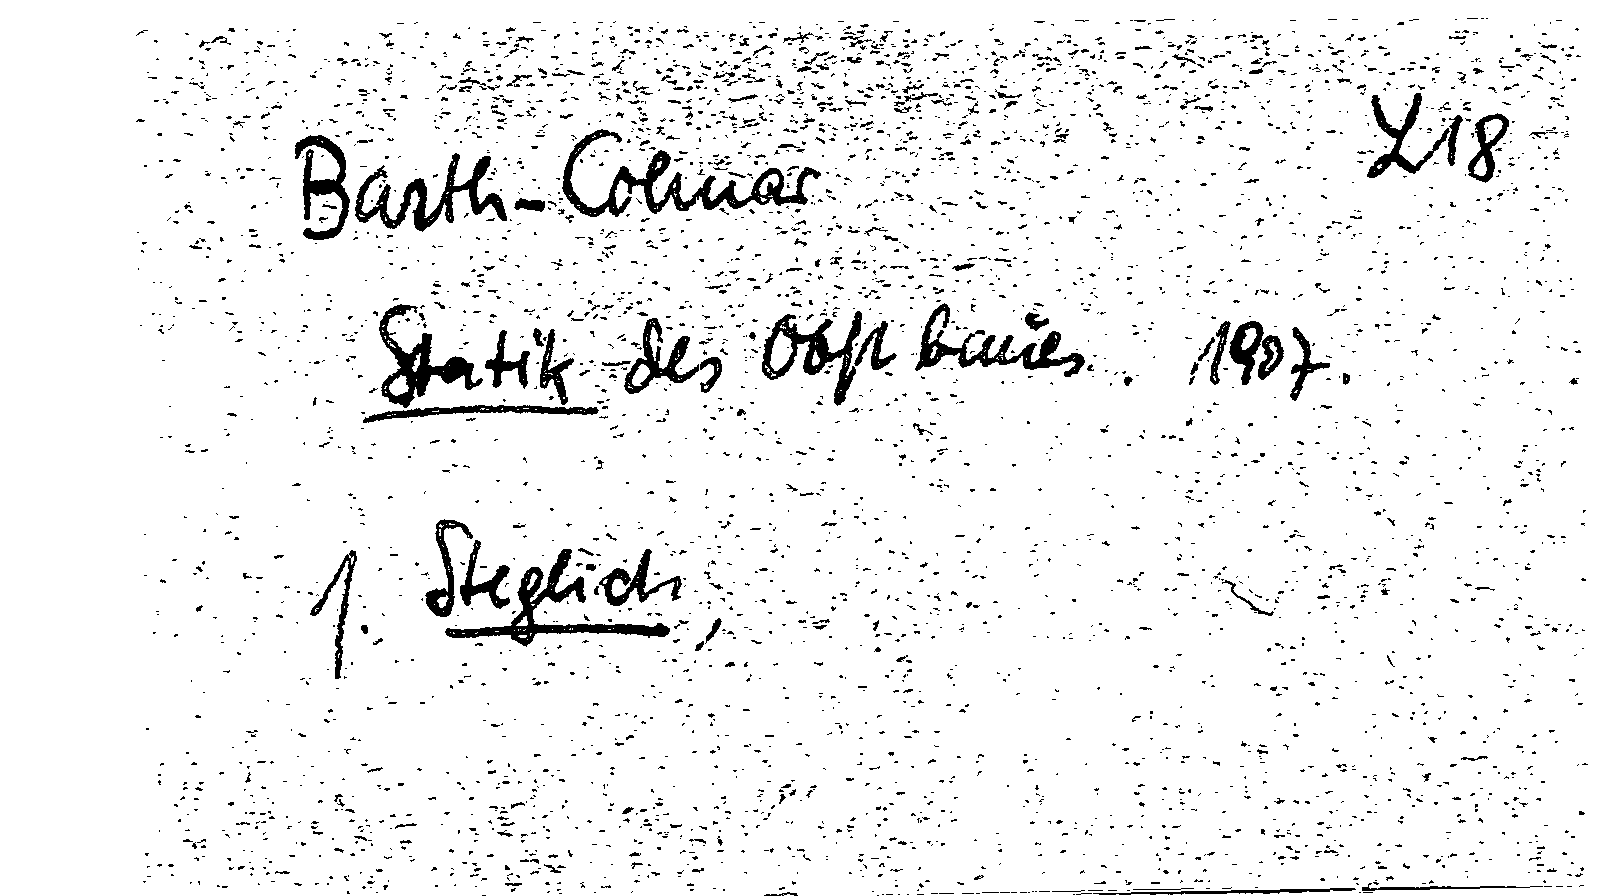 L18
Barth-Colmar
Statik des Obstbaues. 1907.
1. Steglich,